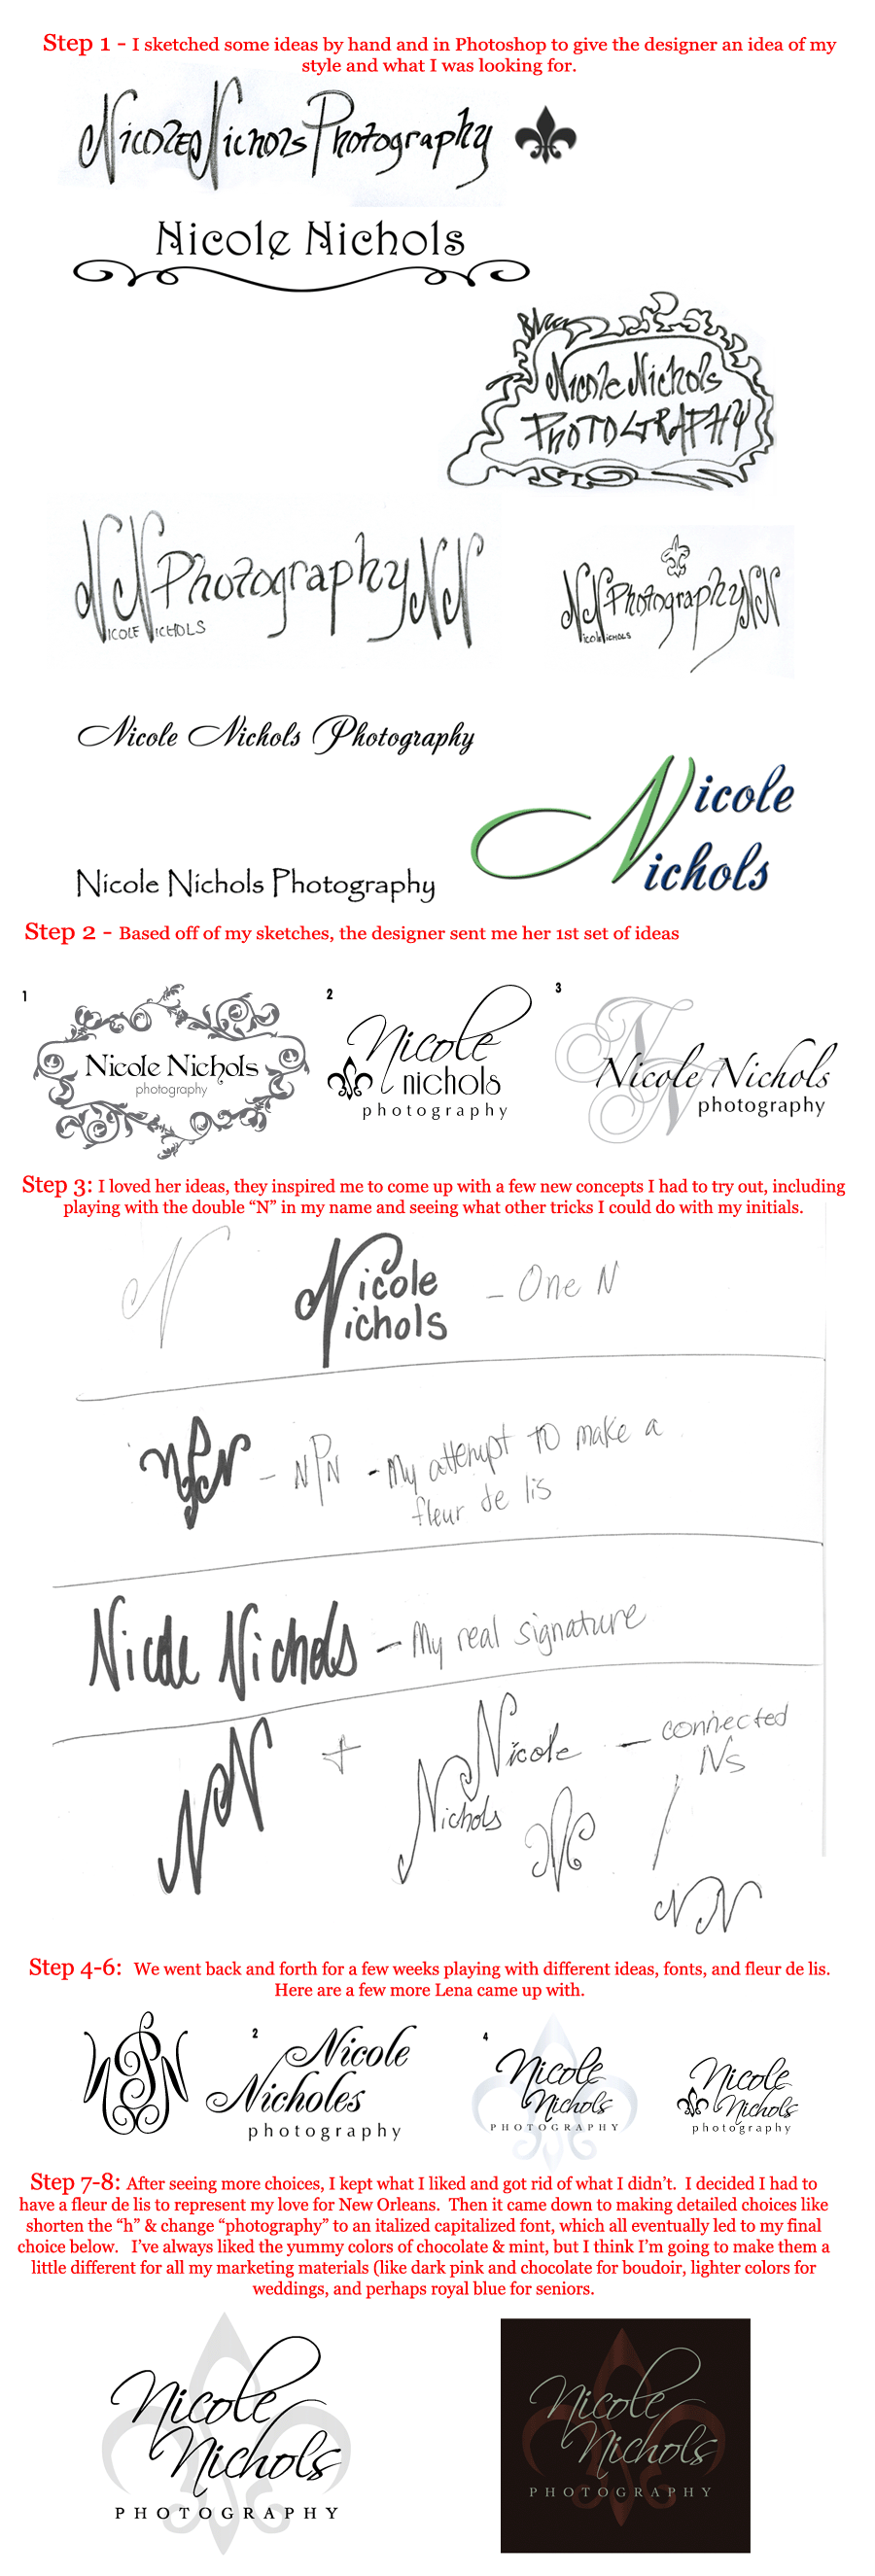 Step 1 - I sketched some ideas by hand and in Photoshop to give the designer an idea of my
style and what I was looking for.
Nicole Nichols Photography
Nicole Nichols
Nicole Nichols
PHOTOGRAPHY
NN Photography NN
ICOLE ICHOLS
NN Photography NN
icole ichols
Nicole Nichols Photography
Nicole
ichols
Nicole Nichols Photography
Step 2 - Based off of my sketches, the designer sent me her 1st set of ideas
1
Nicole Nichols
photography
2
Nicole
nichols
photography
3
NN
Nicole Nichols
photography
Step 3: I loved her ideas, they inspired me to come up with a few new concepts I had to try out, including
playing with the double “N” in my name and seeing what other tricks I could do with my initials.
N
Nicole
ichols
- One N
NPN - NPN - My attempt to make a
fleur de lis
Nicole Nichols - My real signature
NN + Nicole
Nichols
- connected
Ns
NN
Step 4-6: We went back and forth for a few weeks playing with different ideas, fonts, and fleur de lis.
Here are a few more Lena came up with.
NPN
2
Nicole
Nicholes
photography
4
Nicole
Nichols
PHOTOGRAPHY
Nicole
Nichols
photography
Step 7-8: After seeing more choices, I kept what I liked and got rid of what I didn’t. I decided I had to
have a fleur de lis to represent my love for New Orleans. Then it came down to making detailed choices like
shorten the “h” & change “photography” to an italized capitalized font, which all eventually led to my final
choice below. I’ve always liked the yummy colors of chocolate & mint, but I think I’m going to make them a
little different for all my marketing materials (like dark pink and chocolate for boudoir, lighter colors for
weddings, and perhaps royal blue for seniors.
Nicole
Nichols
PHOTOGRAPHY
Nicole
Nichols
PHOTOGRAPHY